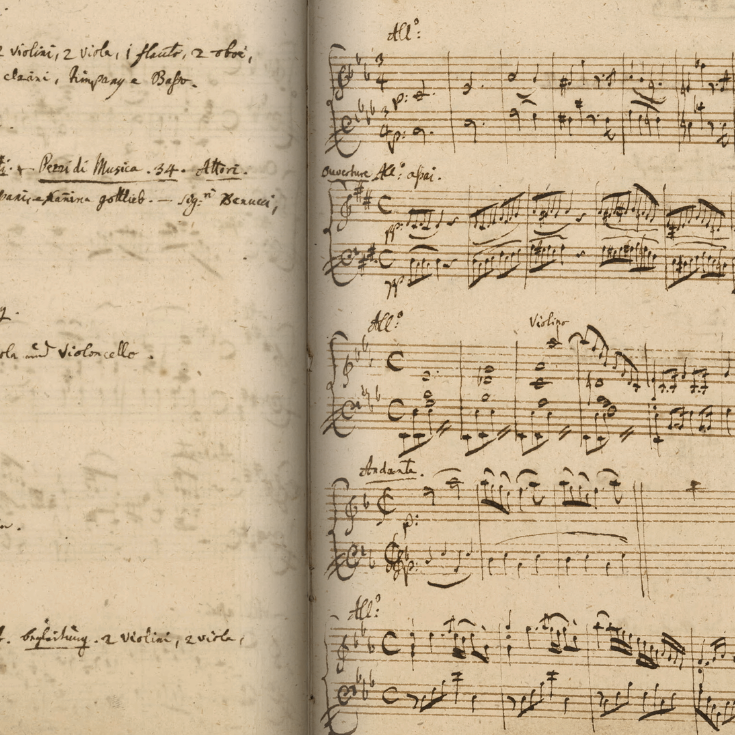 2 violini, 2 viole, 1 flauto, 2 oboe,
clarini, timpany e Baßo.
Pezzi di Musica. 34. Attori.
gottlieb. — Sig:ri Benucci,
und Violoncello.
begleitung. 2 violini, 2 viole,
All:o
p:
p:
Ouverture All:o aßai.
pp
pp
All:o
Violino
Andante.
p:
All:o